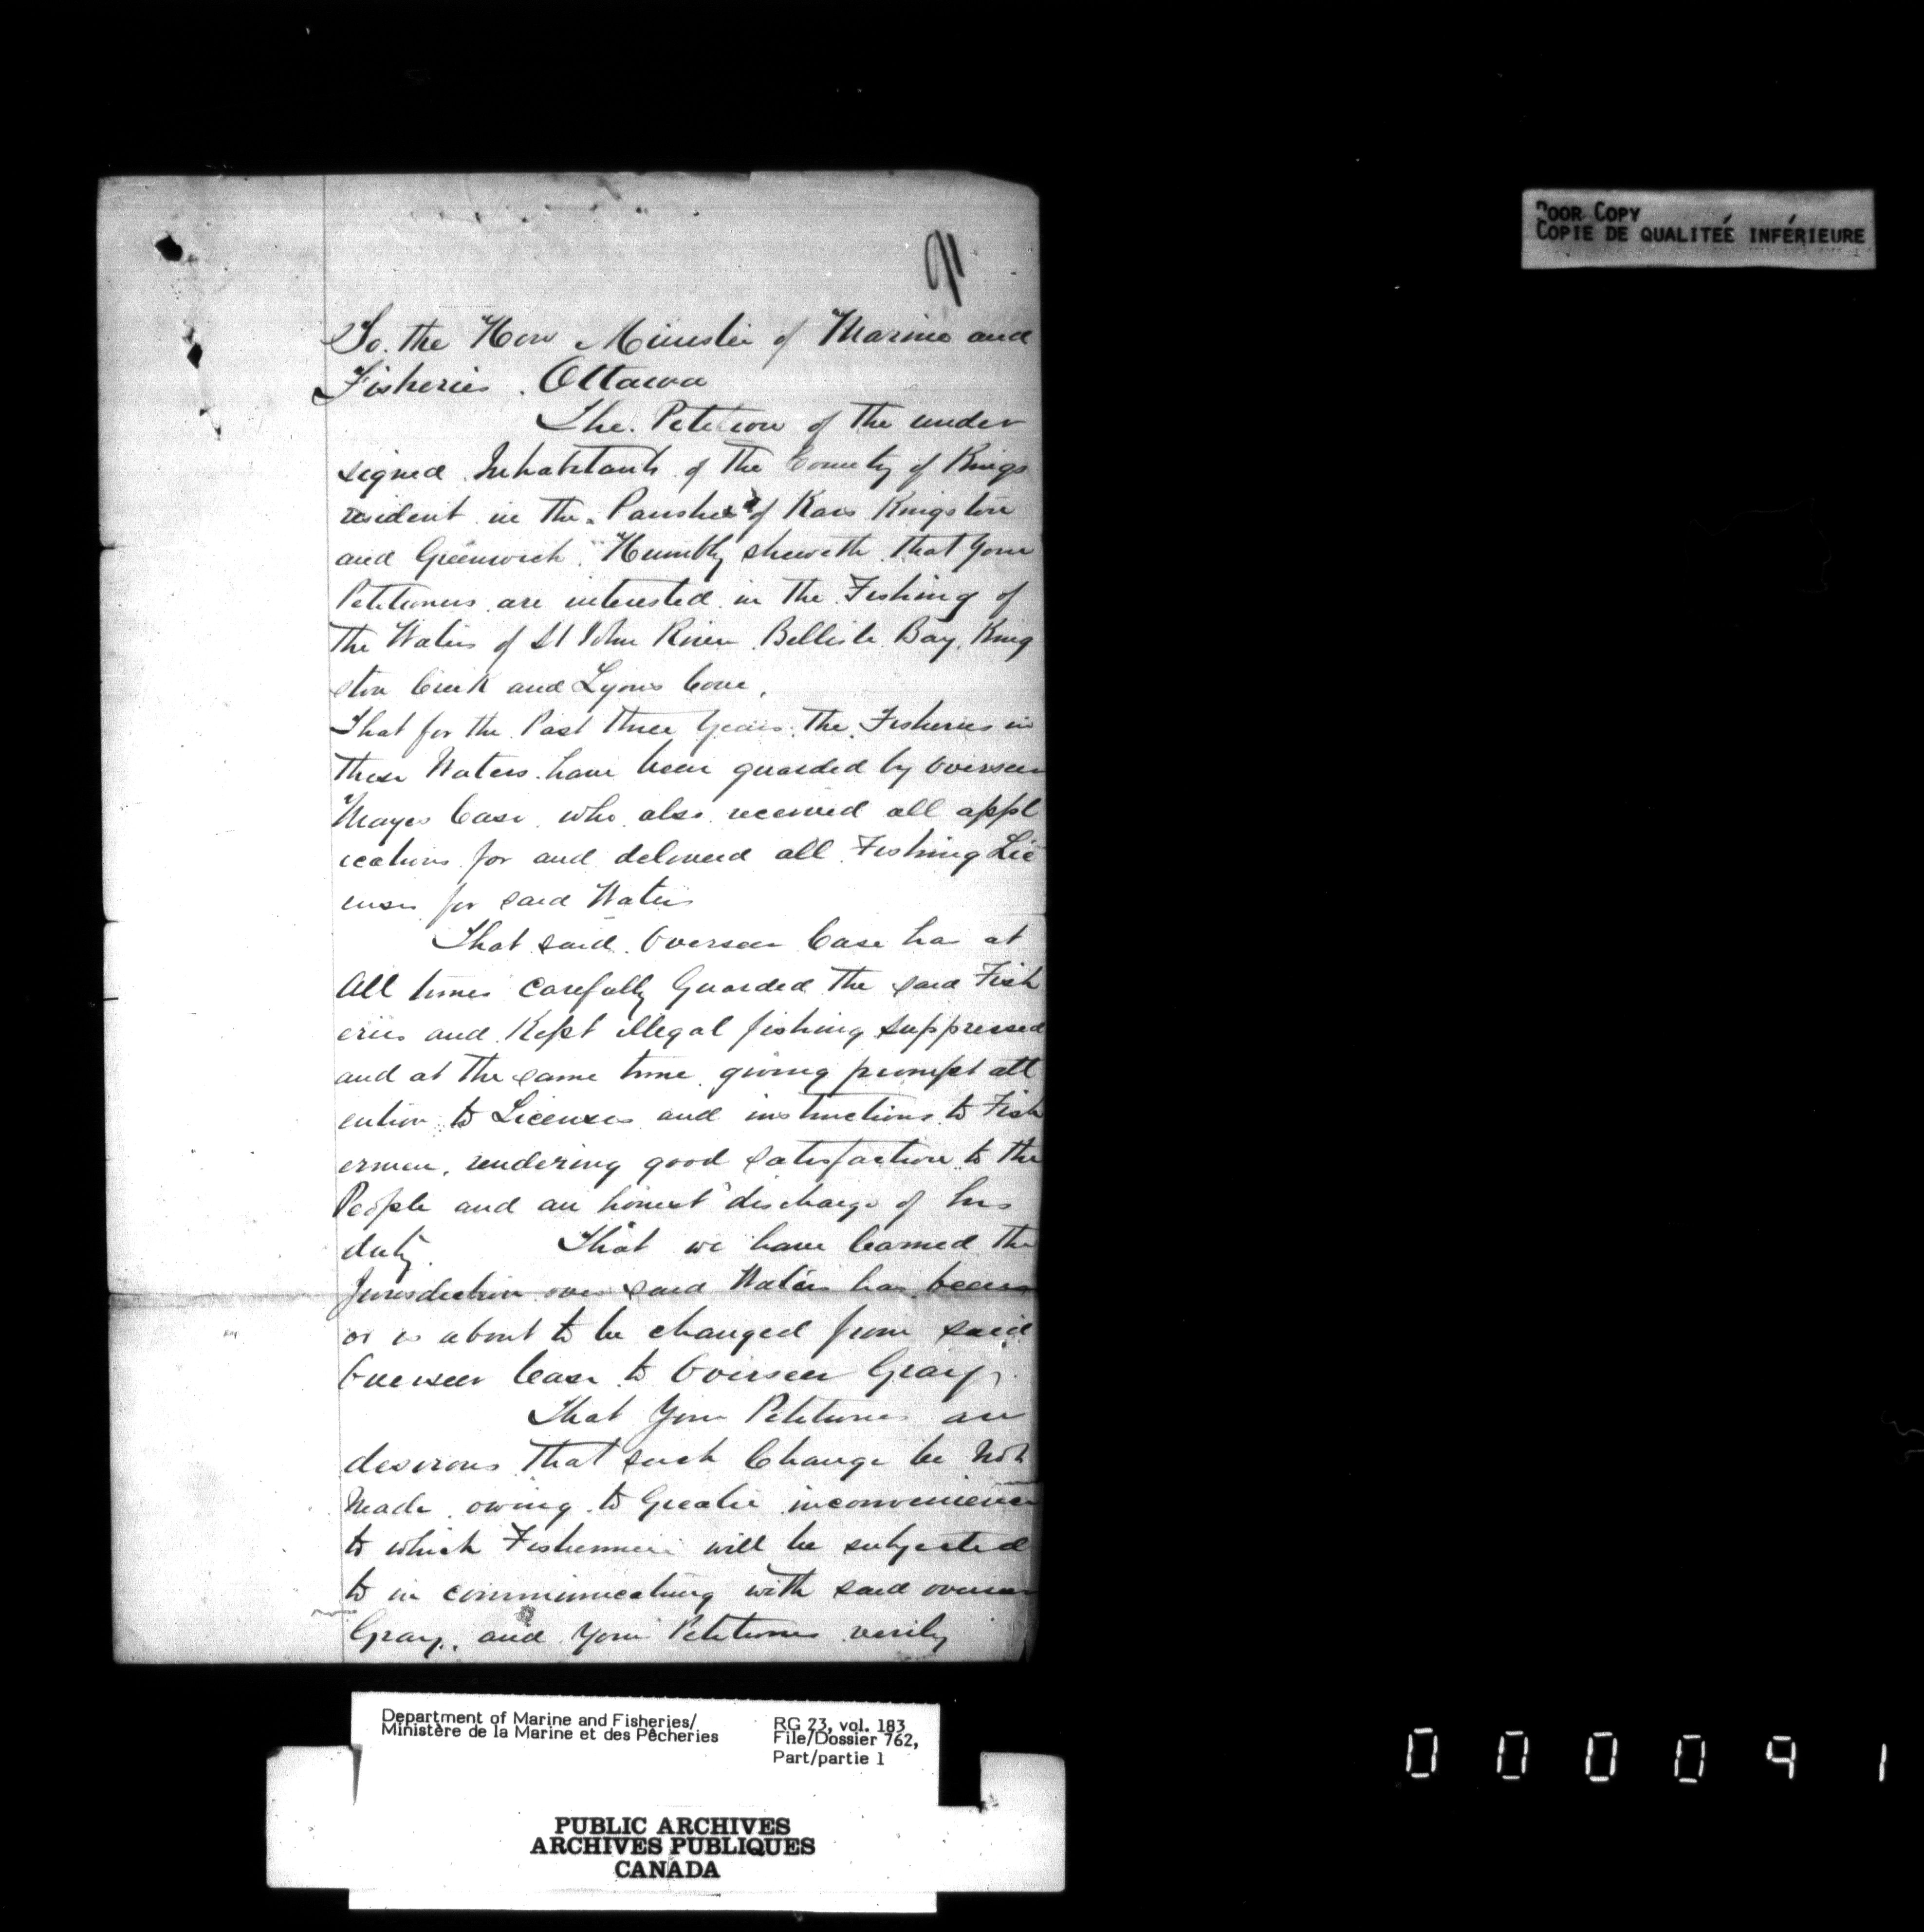 91
POOR COPY
COPIE DE QUALITÉE INFÉRIEURE
To. the Hon Minister of Marine and
Fisheries. Ottawa
The Petition of the under
signed Inhabitants of the County of Kings
resident in the Parishes of Kars Kingston
and Greenwich. Humbly sheweth that Your
Petitioners are interested in the Fishing of
the Waters of St John River Bellisle Bay, King
ston Creek and Lyons Cove.
That for the Past three Years the Fisheries in
these Waters have been guarded by Overseer
Mayes Case who also received all appl
ications for and delivered all Fishing Lic
enses for said Waters
That said Overseer Case has at
All times Carefully Guarded the said Fish
eries and Kept illegal fishing suppressed
and at the same time giving prompt att
ention to Licenses and instructions to Fish
ermen, rendering good satisfaction to the
People and an honest discharge of his
duty. That we have learned the
Jurisdiction over said Waters has been
or is about to be changed from said
Overseer Case to Overseer Gray.
That Your Petitioners are
desirous that such Change be Not
Made owing to Greater inconvenience
to which Fishermen will be subjected
to in communicating with said overseer
Gray, and Your Petitioners verily
Department of Marine and Fisheries/
Ministère de la Marine et des Pêcheries
RG 23, vol. 183
File/Dossier 762,
Part/partie 1
PUBLIC ARCHIVES
ARCHIVES PUBLIQUES
CANADA
000091